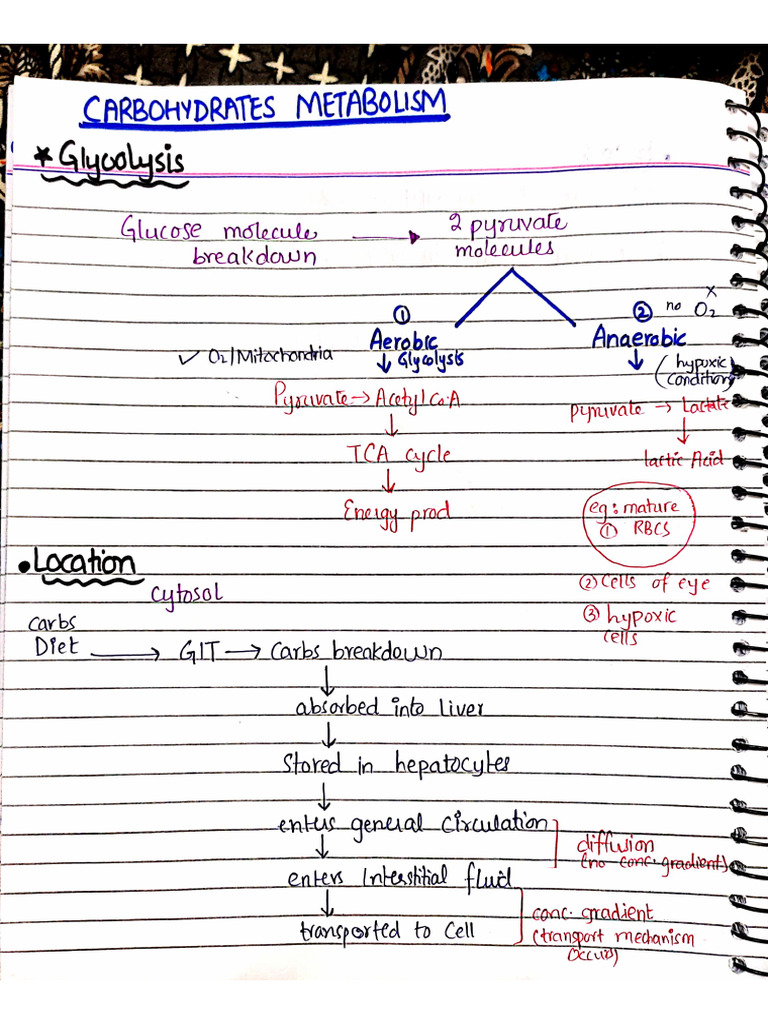 CARBOHYDRATES METABOLISM
* Glycolysis
Glucose molecule → 2 pyruvate
breakdown molecules
① ② no O2 x
Aerobic Anaerobic
✓ O2/Mitochondria ↓ Glycolysis ↓ (hypoxic
conditions)
Pyruvate → Acetyl Co.A
pyruvate → Lactate
↓ ↓
TCA cycle lactic Acid
↓
Energy prod
eg: mature
① RBCS
② Cells of eye
③ hypoxic
cells
• Location
cytosol
carbs
Diet → GIT → Carbs breakdown
↓
absorbed into liver
↓
Stored in hepatocytes
↓
enters general Circulation
↓ diffusion
(no conc. gradient)
enters Interstitial fluid
↓ conc. gradient
transported to Cell (transport mechanism
occurs)